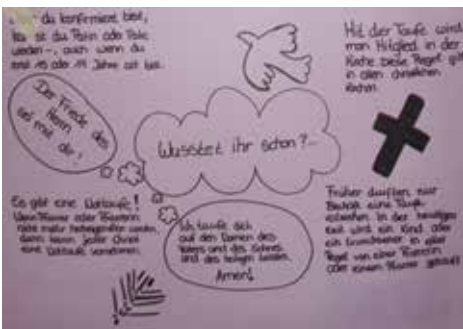 du konfirmiert bist,
du Patin oder Pate
werden -, auch wenn du
erst 13 oder 14 Jahre alt bist.
Mit der Taufe wird
man Mitglied in der
Kirche. Diese Regel gilt
in allen christlichen
Kirchen.
Der Friede des
Herrn
sei mit dir!
Wusstet ihr schon?...
Es gibt eine Nottaufe!
Wenn Pfarrer oder Pfarrerin
nicht mehr
dann kann jeder Christ
eine Nottaufe vornehmen.
Ich taufe dich
auf den Namen des
Vaters und des Sohnes
und des heiligen Geistes.
Amen!
Früher durften nur
Bischöfe eine Taufe
In der heutigen
Zeit wird ein Kind oder
ein Erwachsener in aller
Regel von einer Pfarrerin
oder einem Pfarrer getauft